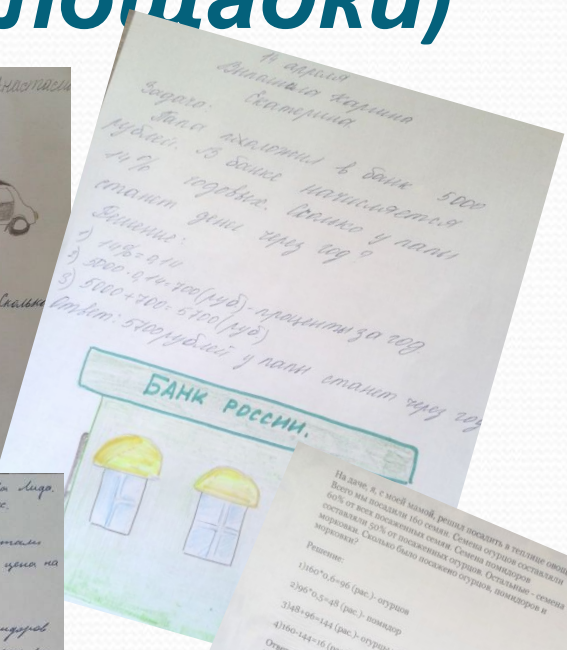 площадки)
14 апреля
Карина
Екатерина
Задача:
Папа положил в банк 5000
рублей. В банке начисляется
14% годовых. Сколько у папы
станет денег через год?
Решение:
1) 14%=0,14
2) 5000·0,14=700(руб)-проценты за год
3) 5000+700=5700(руб)
Ответ: 5700рублей у папы станет через год
БАНК РОССИИ.
Сколько
Лида.
цена на
На даче, я, с моей мамой, решил посадить в теплице овощи
Всего мы посадили 160 семян. Семена огурцов составляли
60% от всех посаженных семян. Семена помидоров
составляли 50% от посаженных огурцов. Остальные - семена
морковки. Сколько было посажено огурцов, помидоров и
морковки?
Решение:
1)160*0,6=96 (рас.)- огурцов
2)96*0,5=48 (рас.)- помидор
3)48+96=144 (рас.)- огурцов
4)160-144=16 (рас.)